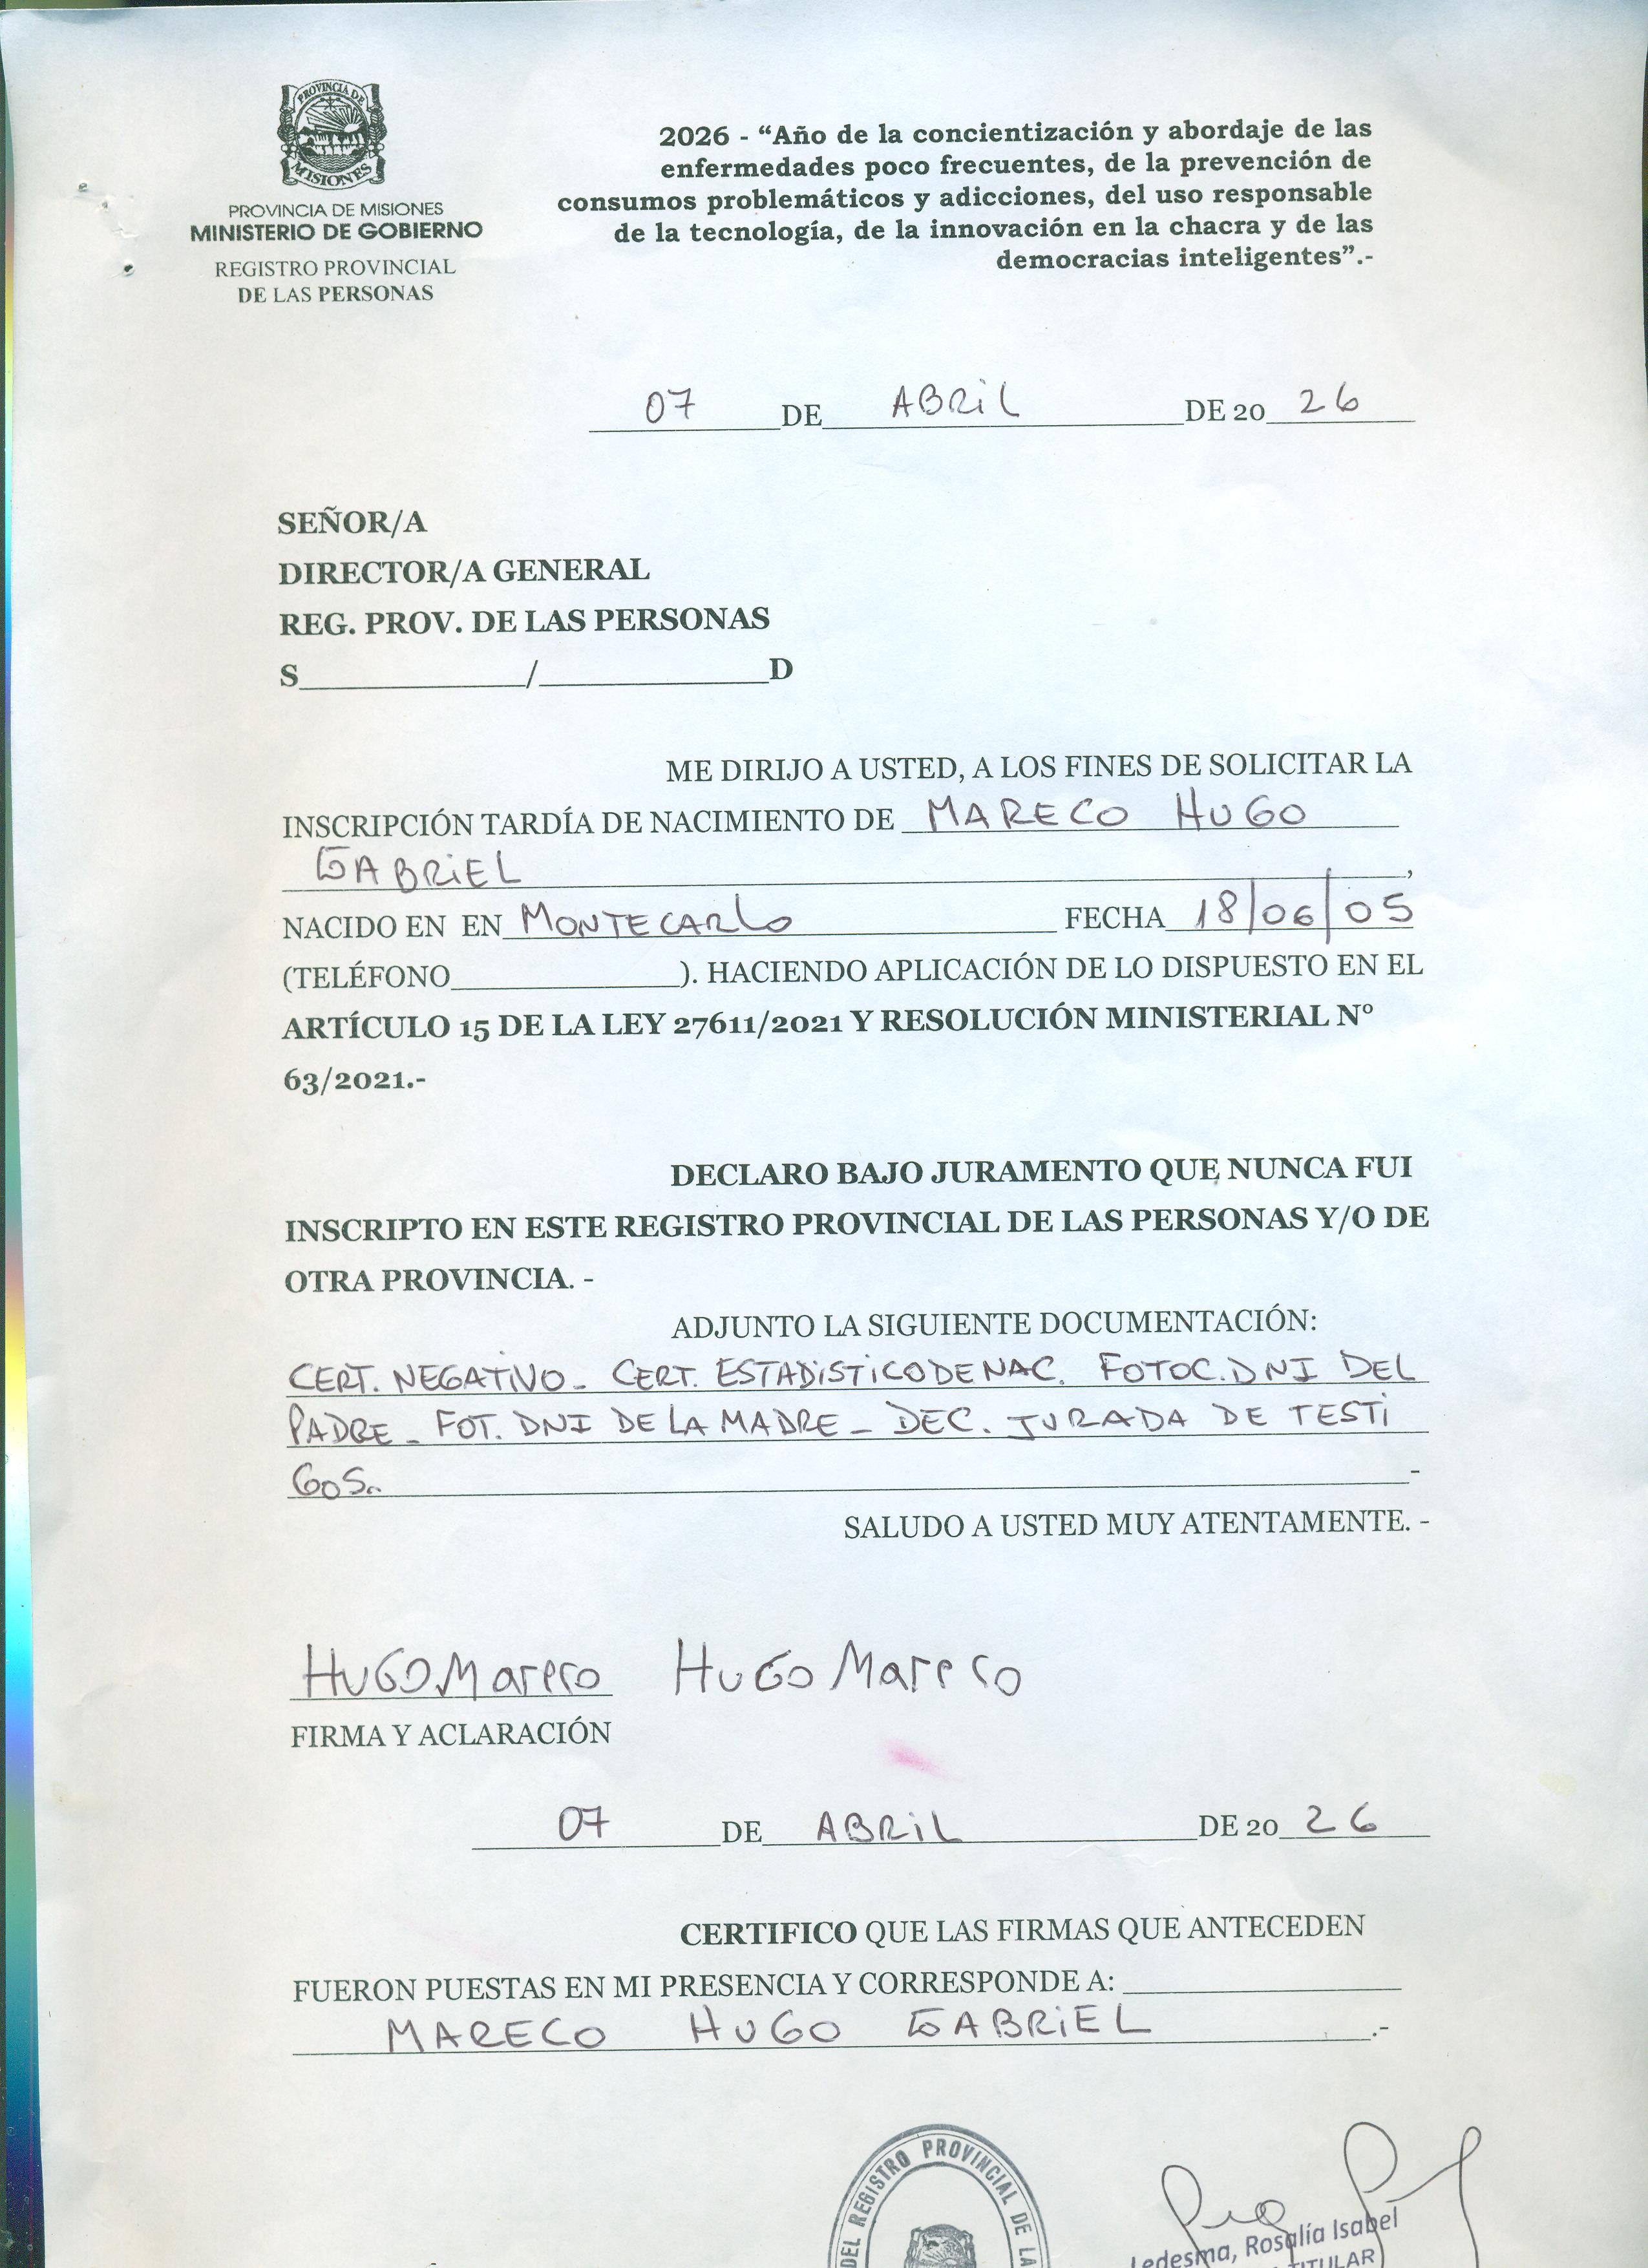 PROVINCIA DE
MISIONES
PROVINCIA DE MISIONES
MINISTERIO DE GOBIERNO
REGISTRO PROVINCIAL
DE LAS PERSONAS
2026 - “Año de la concientización y abordaje de las
enfermedades poco frecuentes, de la prevención de
consumos problemáticos y adicciones, del uso responsable
de la tecnología, de la innovación en la chacra y de las
democracias inteligentes”.-
07 DE ABRIL DE 20 26
SEÑOR/A
DIRECTOR/A GENERAL
REG. PROV. DE LAS PERSONAS
S______________/______________D
ME DIRIJO A USTED, A LOS FINES DE SOLICITAR LA
INSCRIPCIÓN TARDÍA DE NACIMIENTO DE MARECO HUGO
GABRIEL,
NACIDO EN EN MONTECARLO FECHA 18/06/05
(TELÉFONO______________). HACIENDO APLICACIÓN DE LO DISPUESTO EN EL
ARTÍCULO 15 DE LA LEY 27611/2021 Y RESOLUCIÓN MINISTERIAL Nº
63/2021.-
DECLARO BAJO JURAMENTO QUE NUNCA FUI
INSCRIPTO EN ESTE REGISTRO PROVINCIAL DE LAS PERSONAS Y/O DE
OTRA PROVINCIA. -
ADJUNTO LA SIGUIENTE DOCUMENTACIÓN:
CERT. NEGATIVO - CERT. ESTADISTICO DE NAC. FOTOC. DNI DEL
PADRE - FOT. DNI DE LA MADRE - DEC. JURADA DE TESTI
GOS. -
SALUDO A USTED MUY ATENTAMENTE. -
HUGO Mareco HUGO Mareco
FIRMA Y ACLARACIÓN
07 DE ABRIL DE 20 26
CERTIFICO QUE LAS FIRMAS QUE ANTECEDEN
FUERON PUESTAS EN MI PRESENCIA Y CORRESPONDE A:
MARECO HUGO GABRIEL .-
DEL REGISTRO PROVINCIAL DE LA
Ledesma, Rosalía Isabel
TITULAR